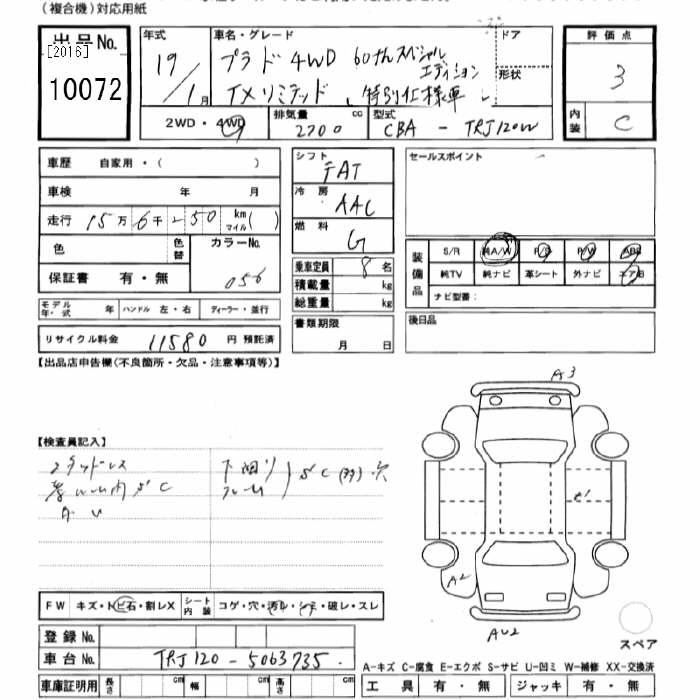 (複合機)対応用紙
出品No. [2016]
10072
年式 19/1月
車名・グレード プラド 4WD 60thスペシャルエディション
TXリミテッド 特別仕様車
ドア
形状
評価点 3
内装 C
2WD・4WD 排気量 2700 cc 型式 CBA - TRJ120W
車歴 自家用・( )
車検 年 月
走行 15万6千 50 km マイル( )
色 色替 カラーNo. 056
保証書 有・無
シフト FAT
冷房 AAC
燃料 G
乗車定員 8名
積載量 kg
総重量 kg
書類期限 月 日
セールスポイント
装備品 S/R 純A/W P/S P/W ABS
純TV 純ナビ 革シート 外ナビ エアB
ナビ型番:
後日品
モデル年・式 年 ハンドル 左・右 ディーラー・並行
リサイクル料金 11580 円 預託済
【出品店申告欄(不良箇所・欠品・注意事項等)】
【検査員記入】
スタッドレス 下回り
フレーム
A3
A2
AU2
FW キズ・トビ石・割レX シート内装 コゲ・穴・汚レ・シミ・破レ・スレ
登録No.
車台No. TRJ120-5063735
車庫証明用 長さ cm 幅 cm 高さ cm
スペア
A-キズ C-腐食 E-エクボ S-サビ U-凹ミ W-補修 XX-交換済
工具 有・無 ジャッキ 有・無